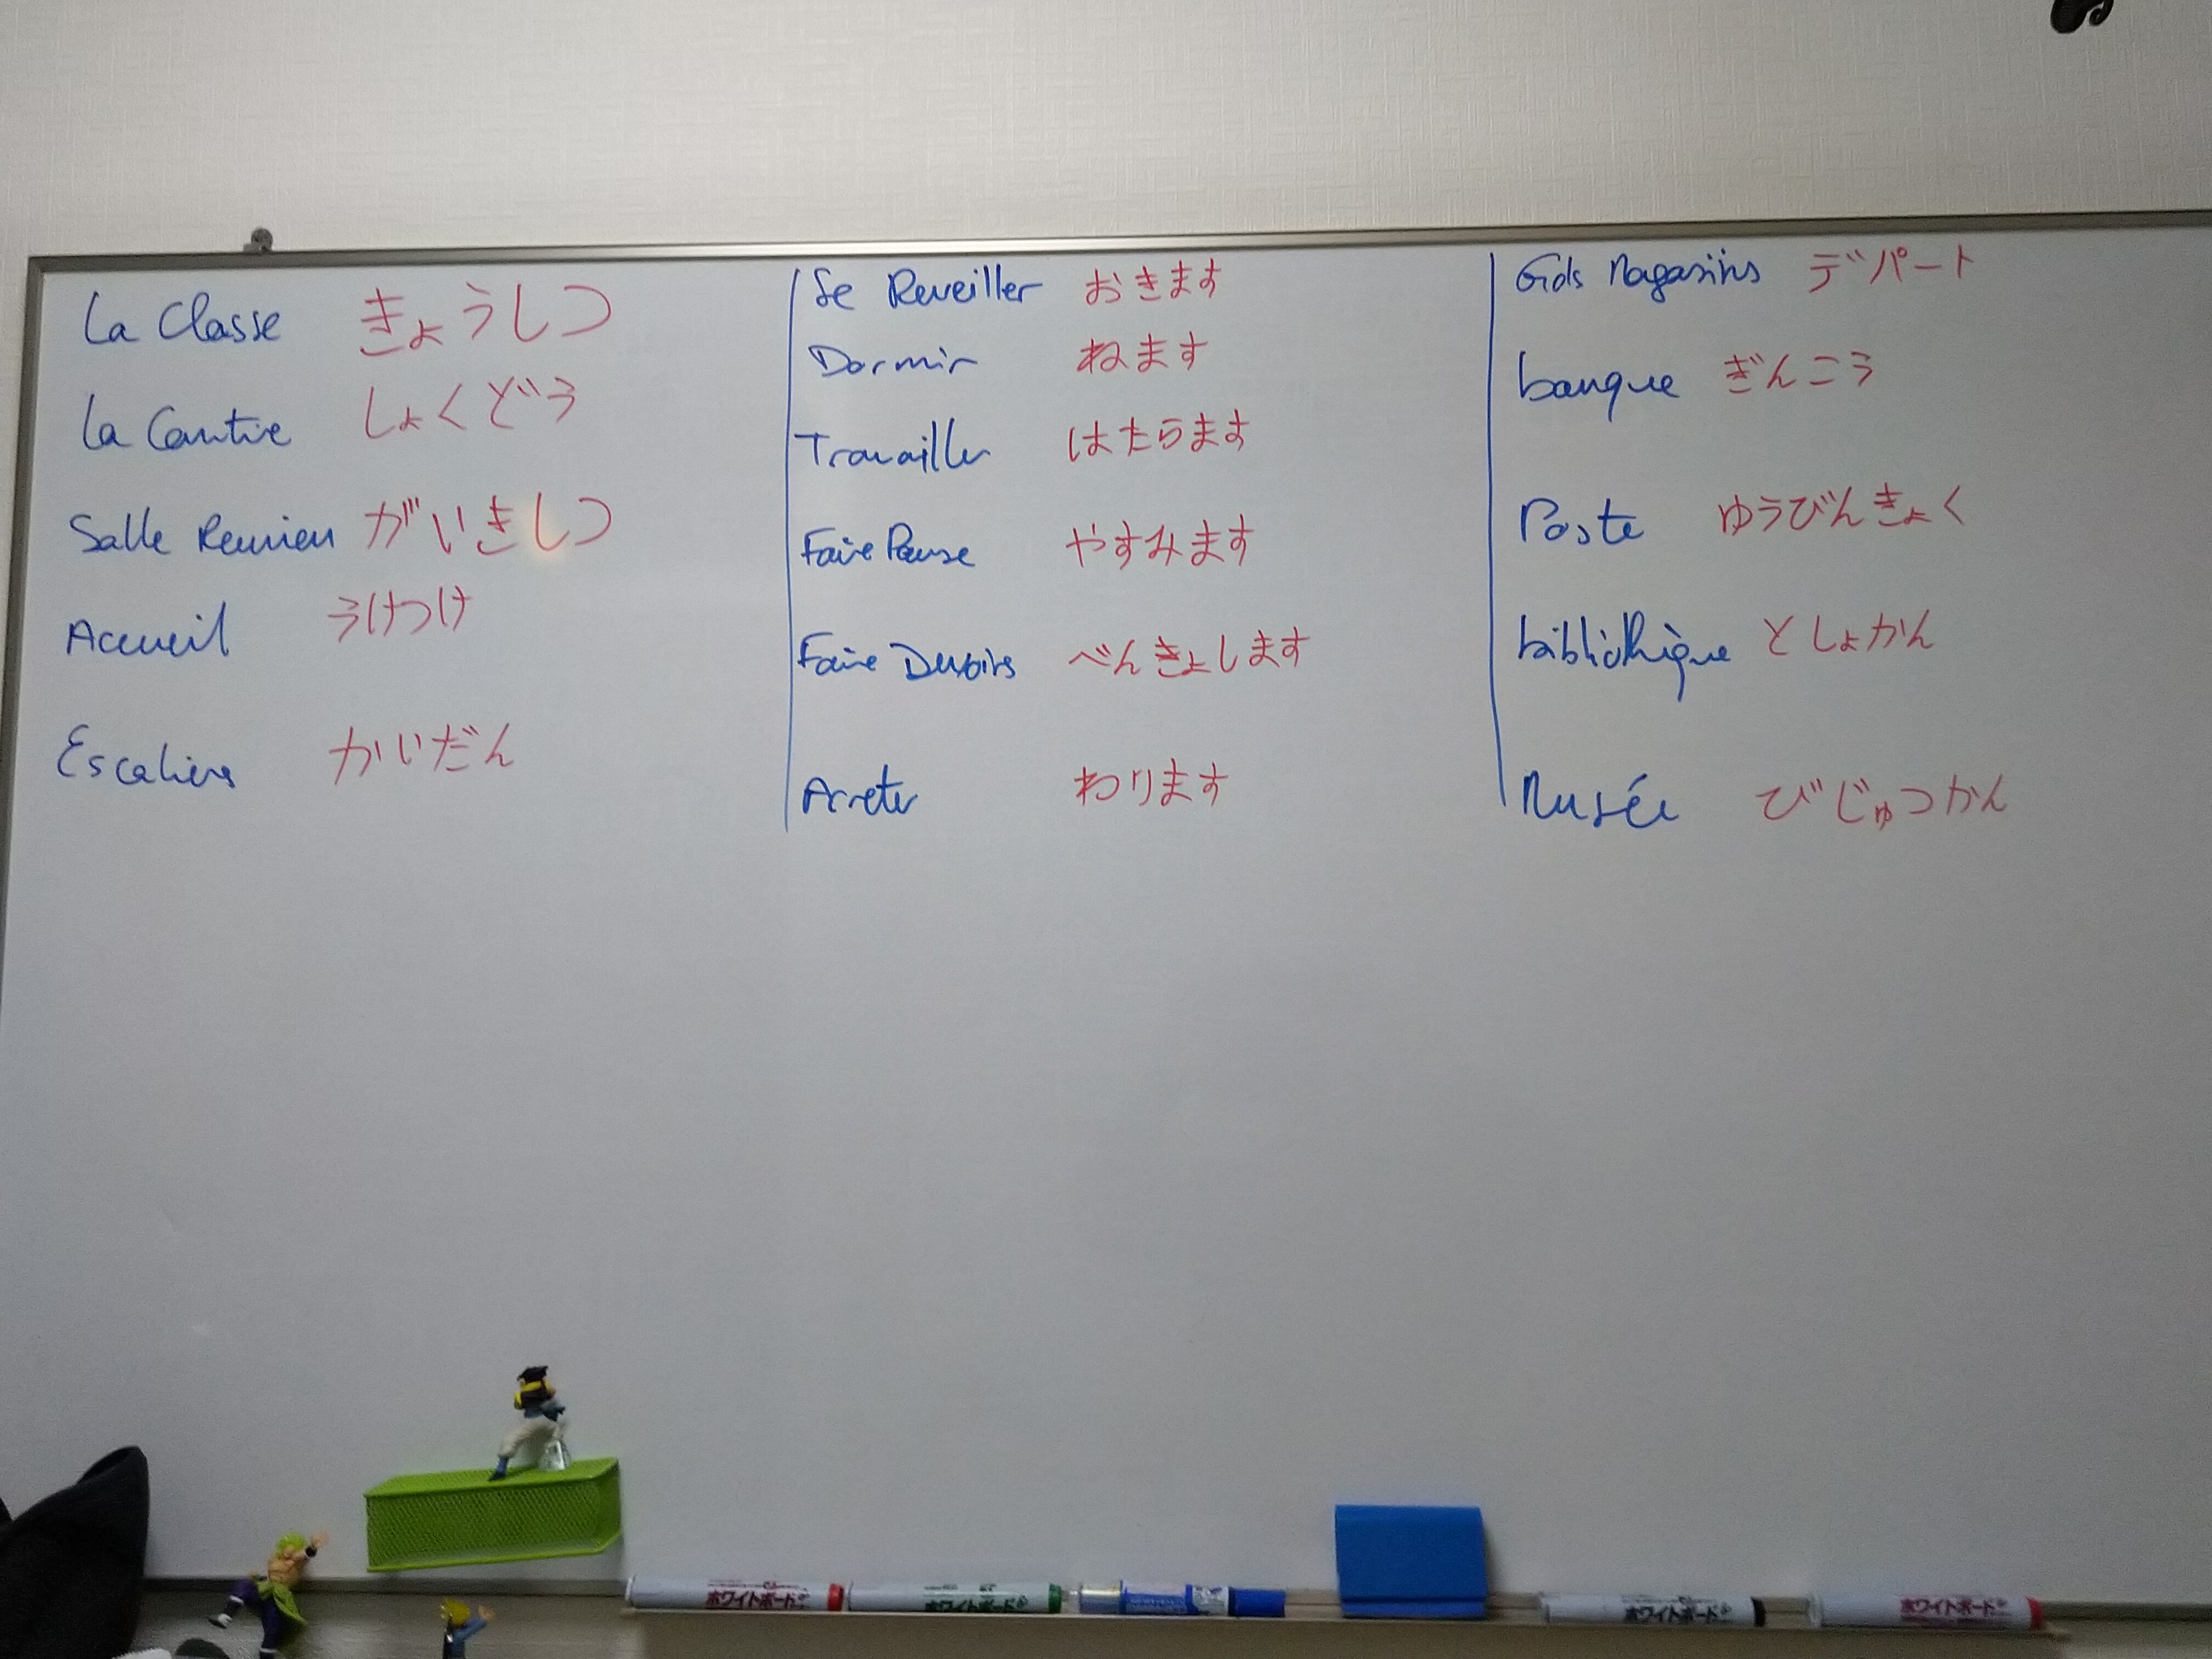 La Classe きょうしつ
La Cantine しょくどう
Salle Reunion がいきしつ
Accueil うけつけ
Escaliers かいだん
Se Reveiller おきます
Dormir ねます
Travailler はたらます
Faire Pause やすみます
Faire Devoirs べんきょします
Arreter わります
Gds Magasins デパート
banque ぎんこう
Poste ゆうびんきょく
bibliothèque としょかん
Musée びじゅつかん
ホワイトボード
ホワイトボード
ホワイトボード
ホワイトボード